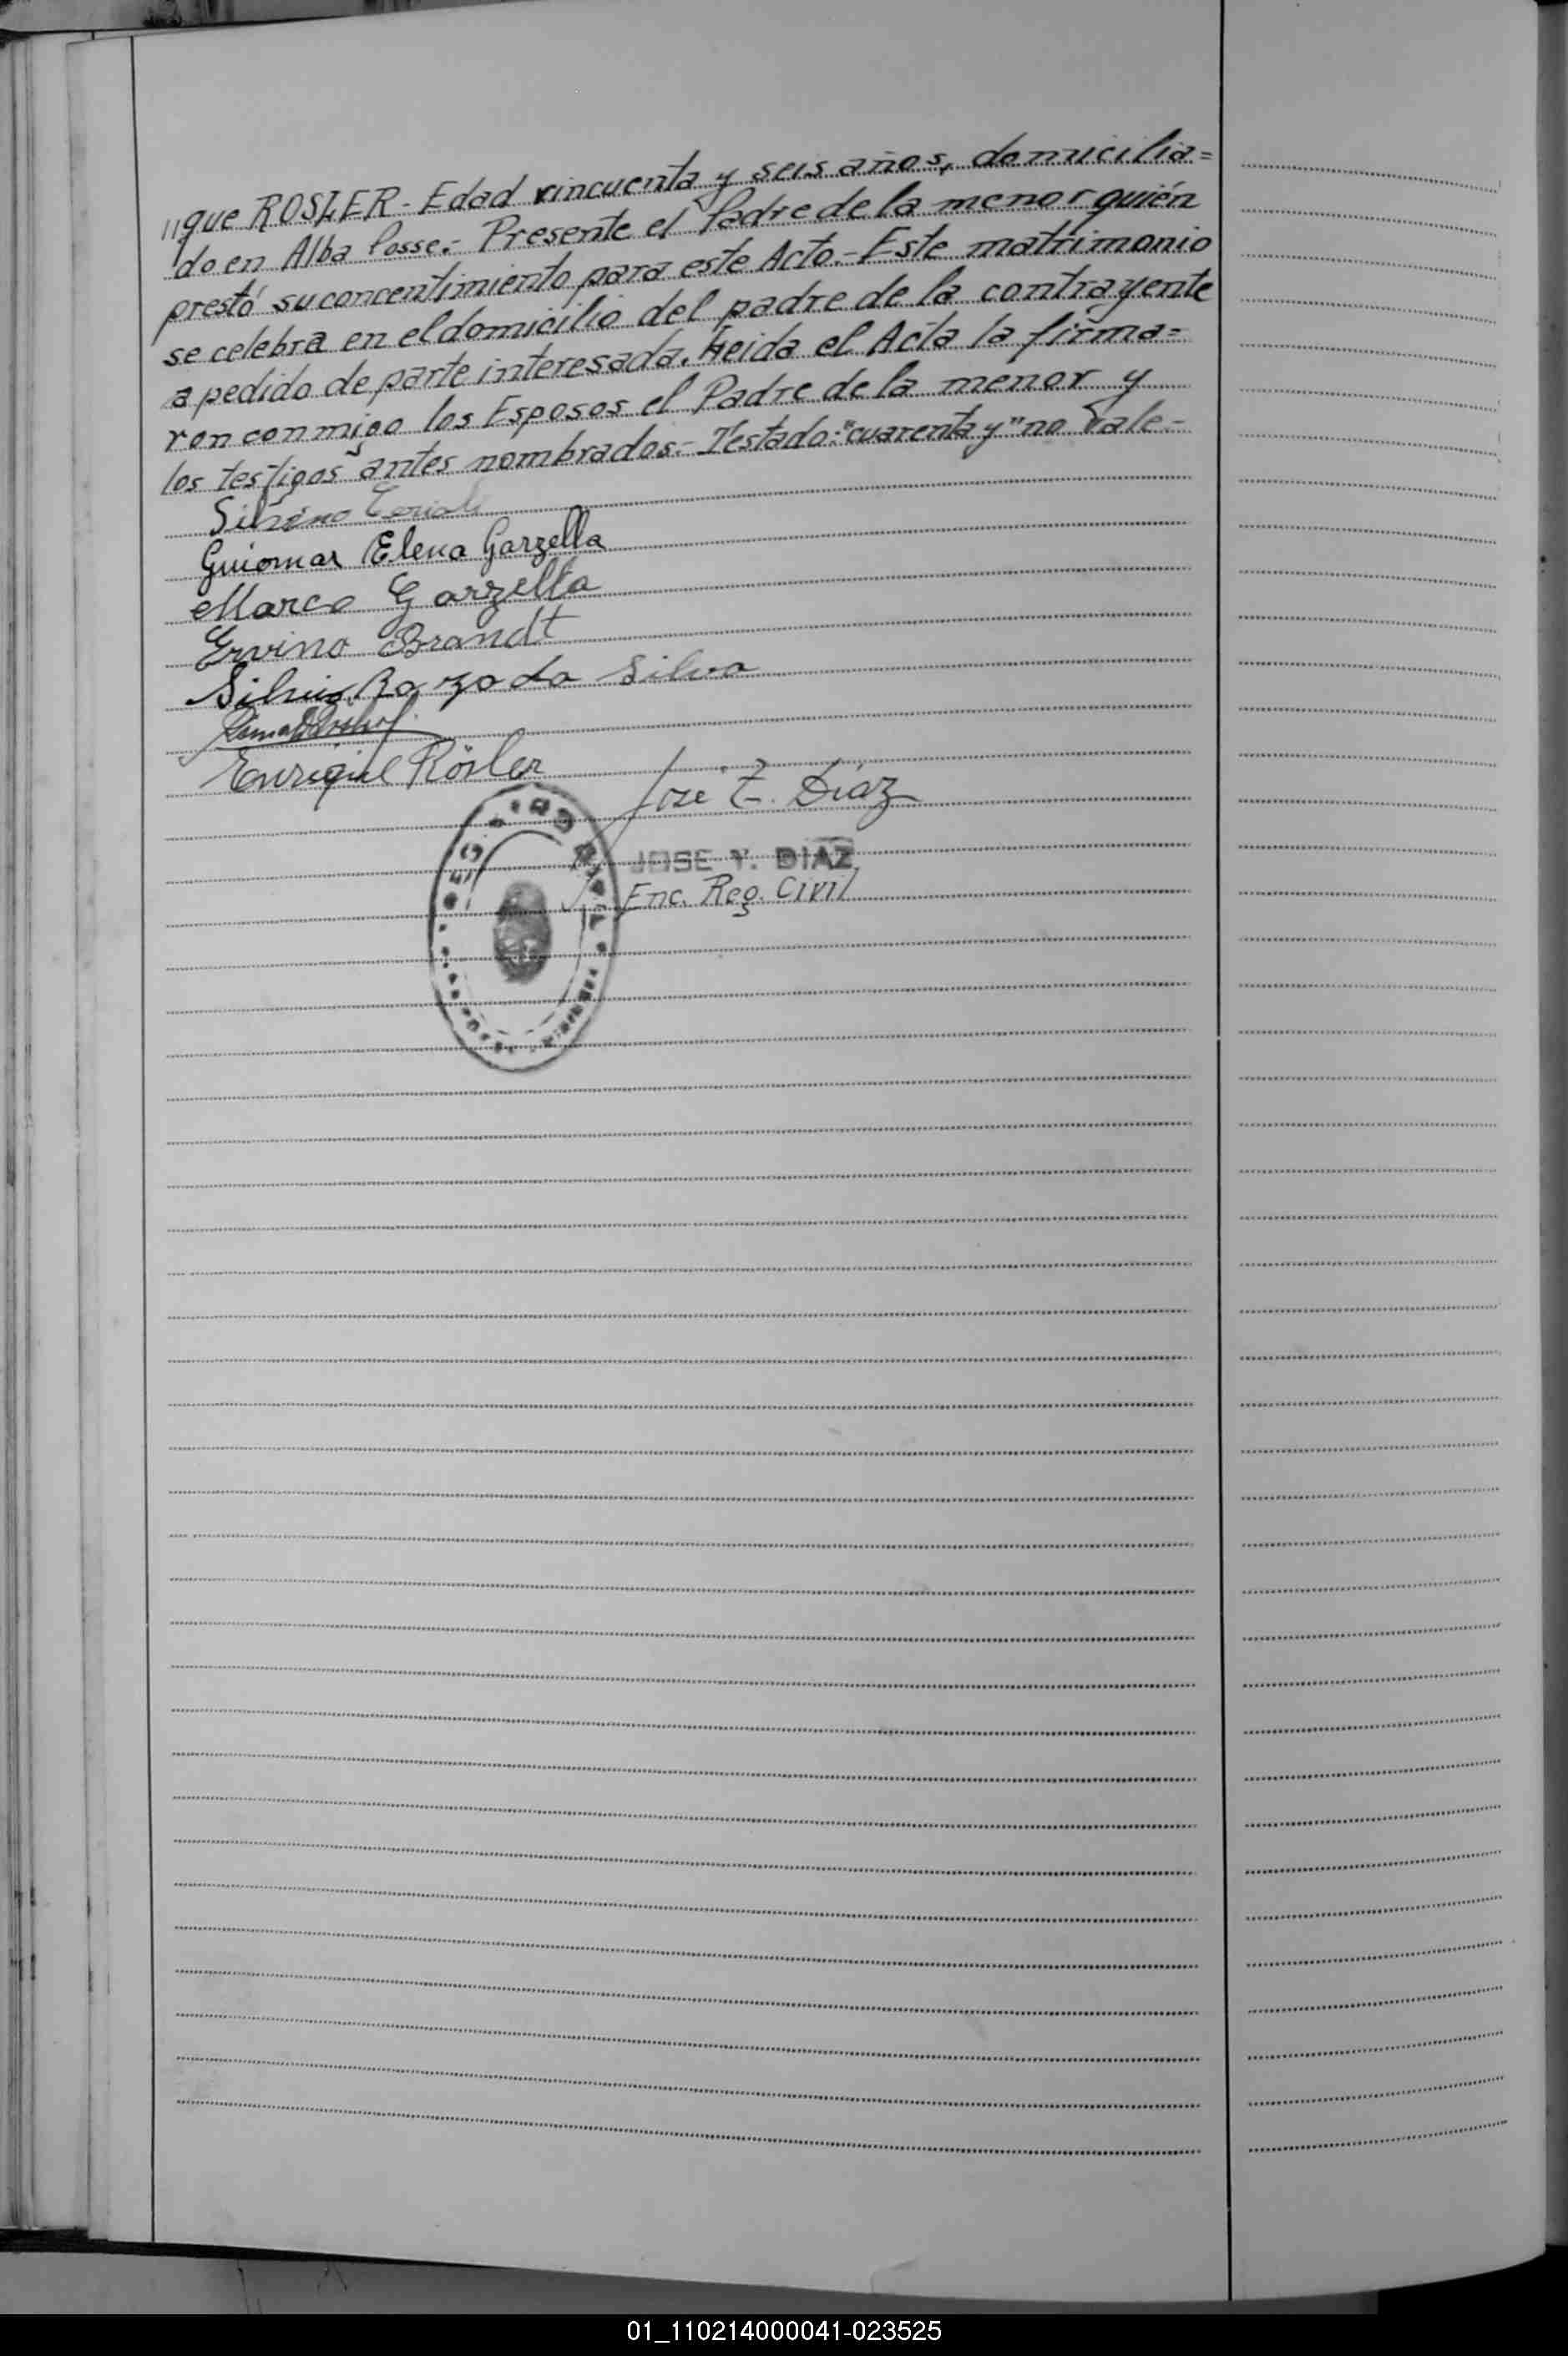 "que ROSLER - Edad cincuenta y seis años, domicilia=
do en Alba Posse.- Presente el Padre de la menor quién
prestó su concentimiento para este Acto.- Este matrimonio
se celebra en el domicilio del padre de la contrayente
a pedido de parte interesada. Leida el Acta la firma=
ron conmigo los Esposos el Padre de la menor y
los testigos antes nombrados.- Testado: "cuarenta y" no vale.-
Guiomar Elena Garzella
Marco Garzella
Ervino Brandt
da Silva
Enrique Rösler
José Y. Díaz
JOSE Y. DIAZ
Enc. Reg. Civil
01_110214000041-023525